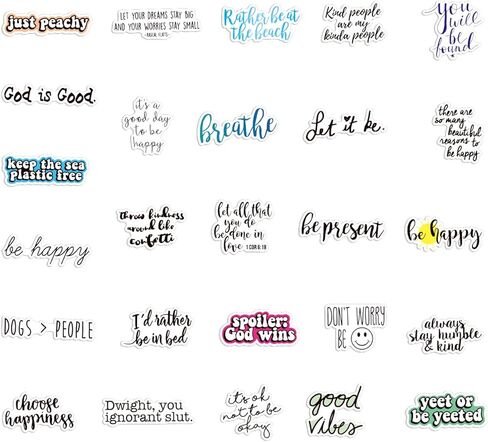 just peachy
LET YOUR DREAMS STAY BIG
AND YOUR WORRIES STAY SMALL
- RASCAL FLATTS -
Rather be at
the beach
Kind people
are my
kinda people
you
will
be
found
God is Good.
it's a
good day
to be
happy
breathe
Let it be.
there are
so many
beautiful
reasons to
be happy
keep the sea
plastic free
throw kindness
around like
confetti
let all that
you do
be done in
love 1 COR 16:18
be present
be happy
be happy
DOGS > PEOPLE
I'd rather
be in bed
spoiler:
God wins
DON'T WORRY
BE
always
stay humble
& kind
choose
happiness
Dwight, you
ignorant slut.
it's ok
not to be
okay
good
vibes
yeet or
be yeeted